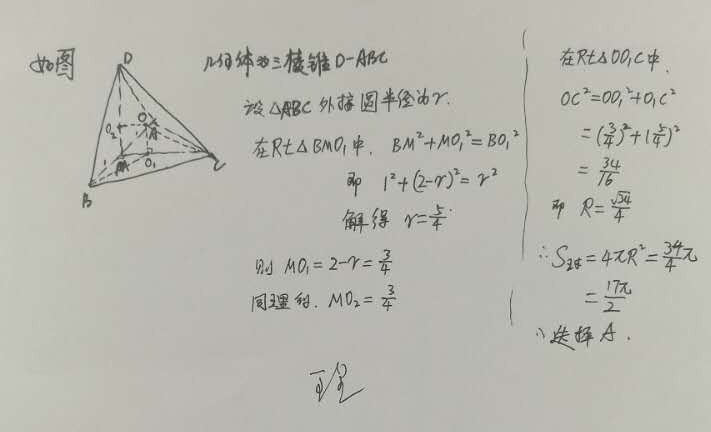 如图
D
O
O₂
A
M
O₁
B
C
几何体为三棱锥D-ABC
设△ABC外接圆半径为r.
在Rt△BMO₁中, BM²+MO₁²=BO₁²
即 1²+(2-r)²=r²
解得 r=5/4.
则 MO₁=2-r=3/4
同理的. MO₂=3/4
在Rt△OO₁C中.
OC²=OO₁²+O₁C²
=(3/4)²+(5/4)²
=34/16
即 R=√34/4
∴S球=4πR²=34/4π
=17π/2
∴选择A.